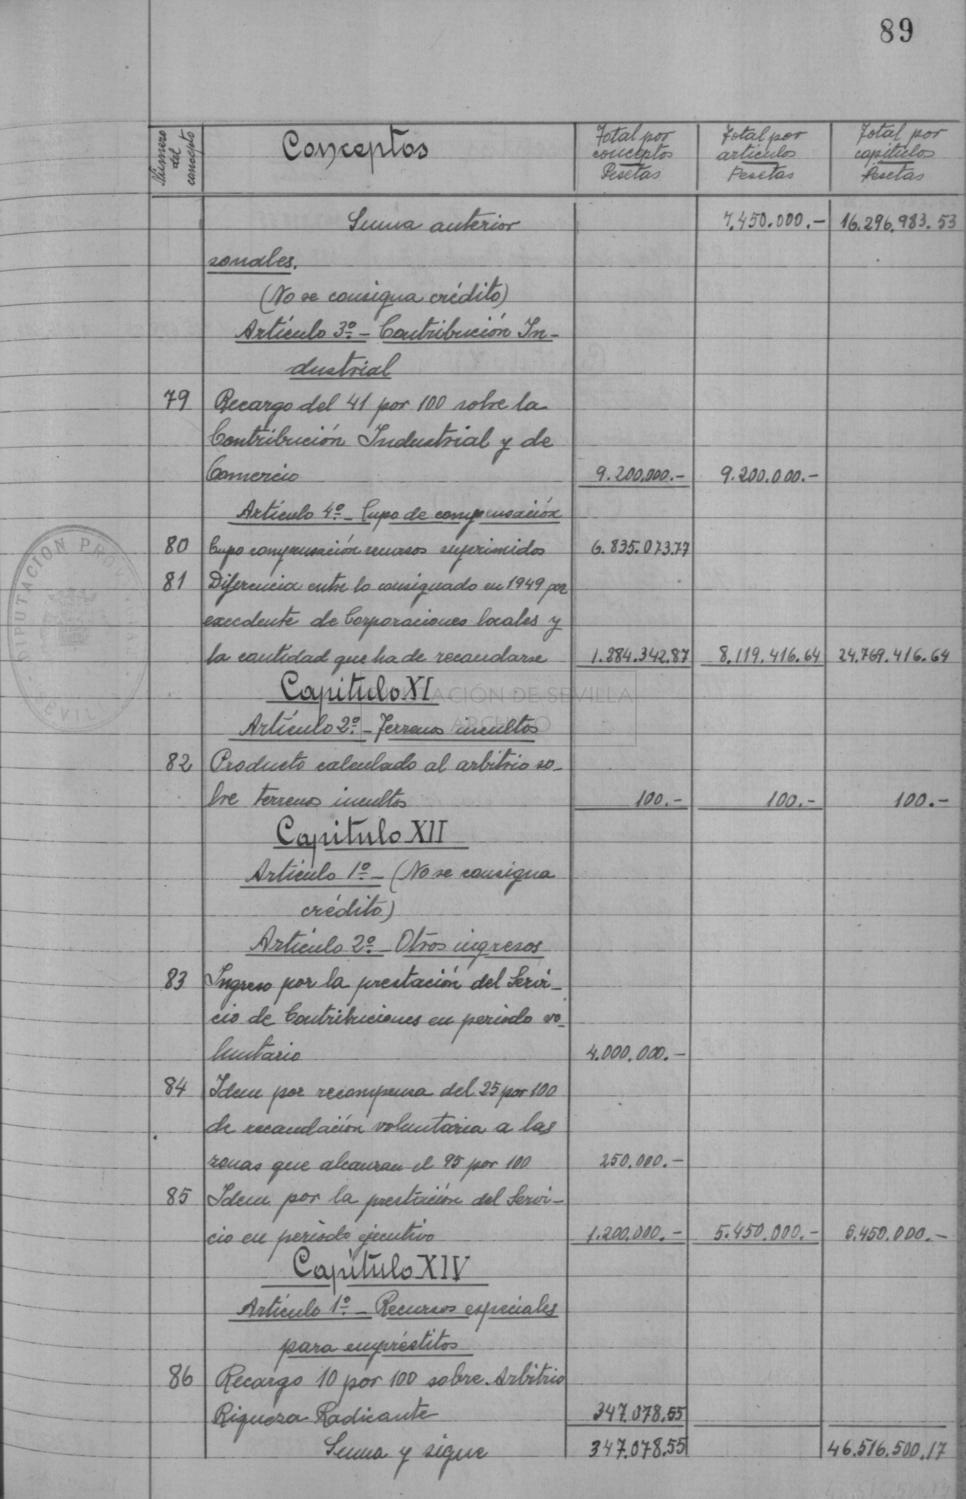 89
Número del concepto Conceptos Total por conceptos Pesetas Total por artículos Pesetas Total por capítulos Pesetas
Suma anterior 7.450.000.- 16.296.983.53
sonales.
(No se consigna crédito)
Artículo 3º.- Contribución In-
dustrial
79 Recargo del 41 por 100 sobre la
Contribución Industrial y de
Comercio 9.200.000.- 9.200.000.-
Artículo 4º.- Cupo de compensación
80 Cupo compensación recursos suprimidos 6.835.073.77
81 Diferencia entre lo consignado en 1949 por
excedente de Corporaciones locales y
la cantidad que ha de recaudarse 1.284.342.87 8.119.416.64 24.769.416.64
Capítulo XI
Artículo 2º.- Terrenos incultos
82 Producto calculado al arbitrio so-
bre terrenos incultos 100.- 100.- 100.-
Capítulo XII
Artículo 1º.- (No se consigna
crédito)
Artículo 2º.- Otros ingresos
83 Ingreso por la prestación del Servi-
cio de Contribuciones en periodo vo-
luntario 4.000.000.-
84 Idem por recompensa del 25 por 100
de recaudación voluntaria a las
zonas que alcanzan el 95 por 100 250.000.-
85 Idem por la prestación del Servi-
cio en periodo ejecutivo 1.200.000.- 5.450.000.- 5.450.000.-
Capítulo XIV
Artículo 1º.- Recursos especiales
para empréstitos
86 Recargo 10 por 100 sobre Arbitrio
Riqueza Radicante 347.078.55
Suma y sigue 347.078.55 46.516.500.17
DIPUTACION PROVINCIAL
SEVILLA
DIPUTACIÓN DE SEVILLA
ARCHIVO